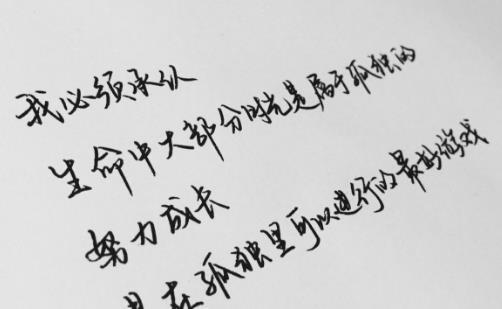 我必须承认
生命中大部分时光是属于孤独的
努力成长
是在孤独里可以进行的最好游戏